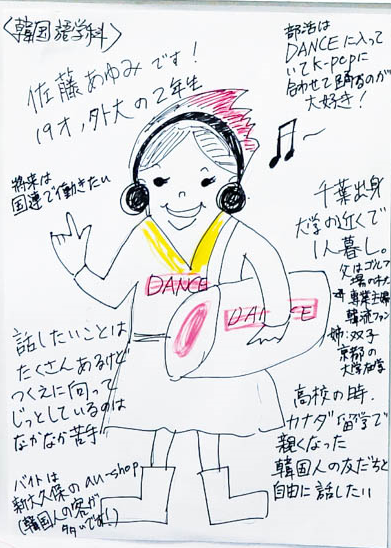 〈韓国語学科〉
佐藤あゆみです!
19才、外大の2年生
部活は
DANCEに入って
いてK-popに
合わせて踊るのが
大好き!
将来は
国連で働きたい
千葉出身
大学の近くで
1人暮し。
父はゴルフ
場の
母 専業主婦
韓流ファン
姉:双子
京都の
大学在学
DANCE
DANCE
話したいことは
たくさんあるけど
つくえに向って
じっとしているのは
なかなか苦手
高校の時、
カナダ留学で
親くなった
韓国人の友だちと
自由に話したい
バイトは
新大久保のau-shop
(韓国人の客が
多いです!)